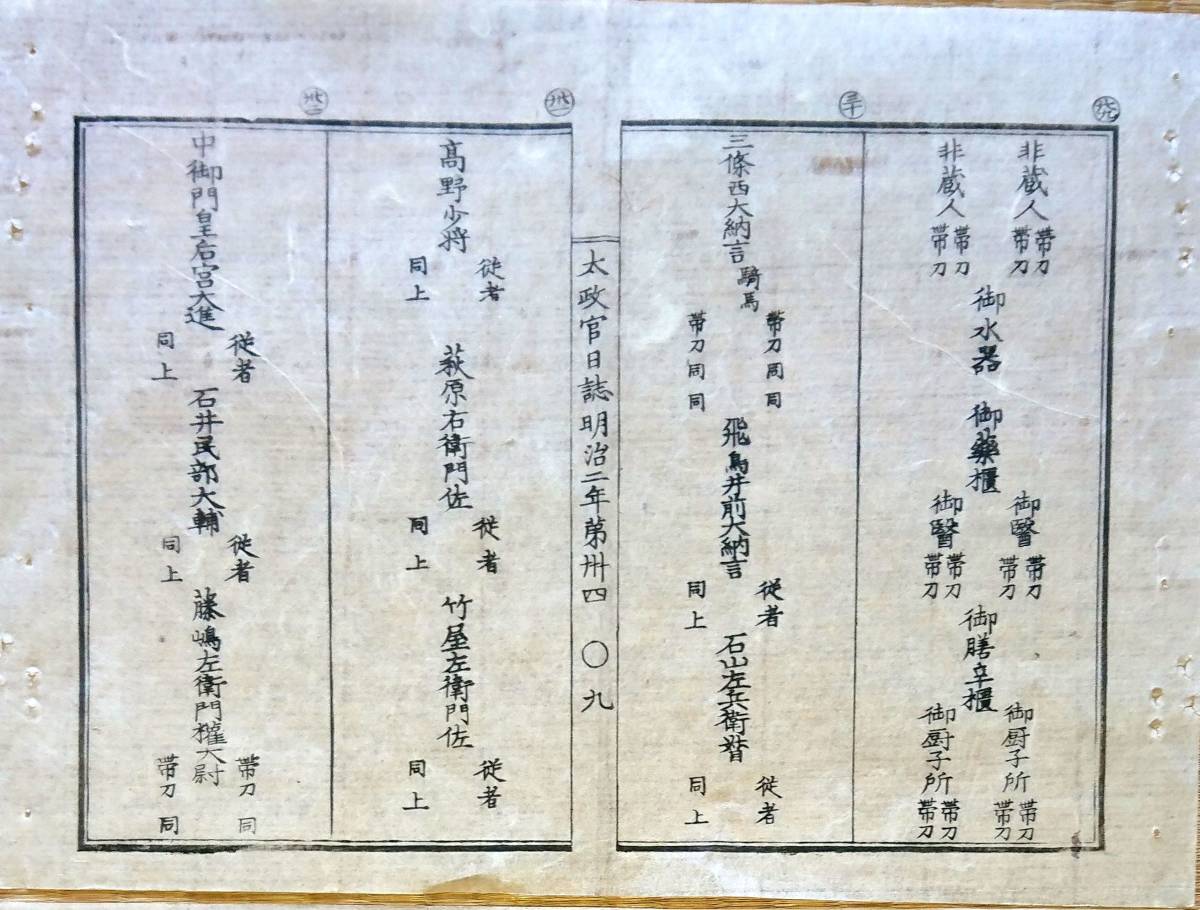 廿九
非蔵人 帯刀 帯刀
非蔵人 帯刀 帯刀
御水器
御藥櫃
御醫 帯刀 帯刀
御醫 帯刀 帯刀
御膳辛櫃
御厨子所 帯刀 帯刀
御厨子所 帯刀 帯刀
三十
三條西大納言 騎馬
帯刀 同 同
帯刀 同 同
飛鳥井前大納言
従者
同上
石山左兵衛督
従者
同上
太政官日誌明治二年第卅四 〇九
卅一
高野少将
従者
同上
萩原右衛門佐
従者
同上
竹屋左衛門佐
従者
同上
卅二
中御門皇后宮大進
従者
同上
石井民部大輔
従者
同上
藤嶋左衛門權大尉
帯刀 同
帯刀 同